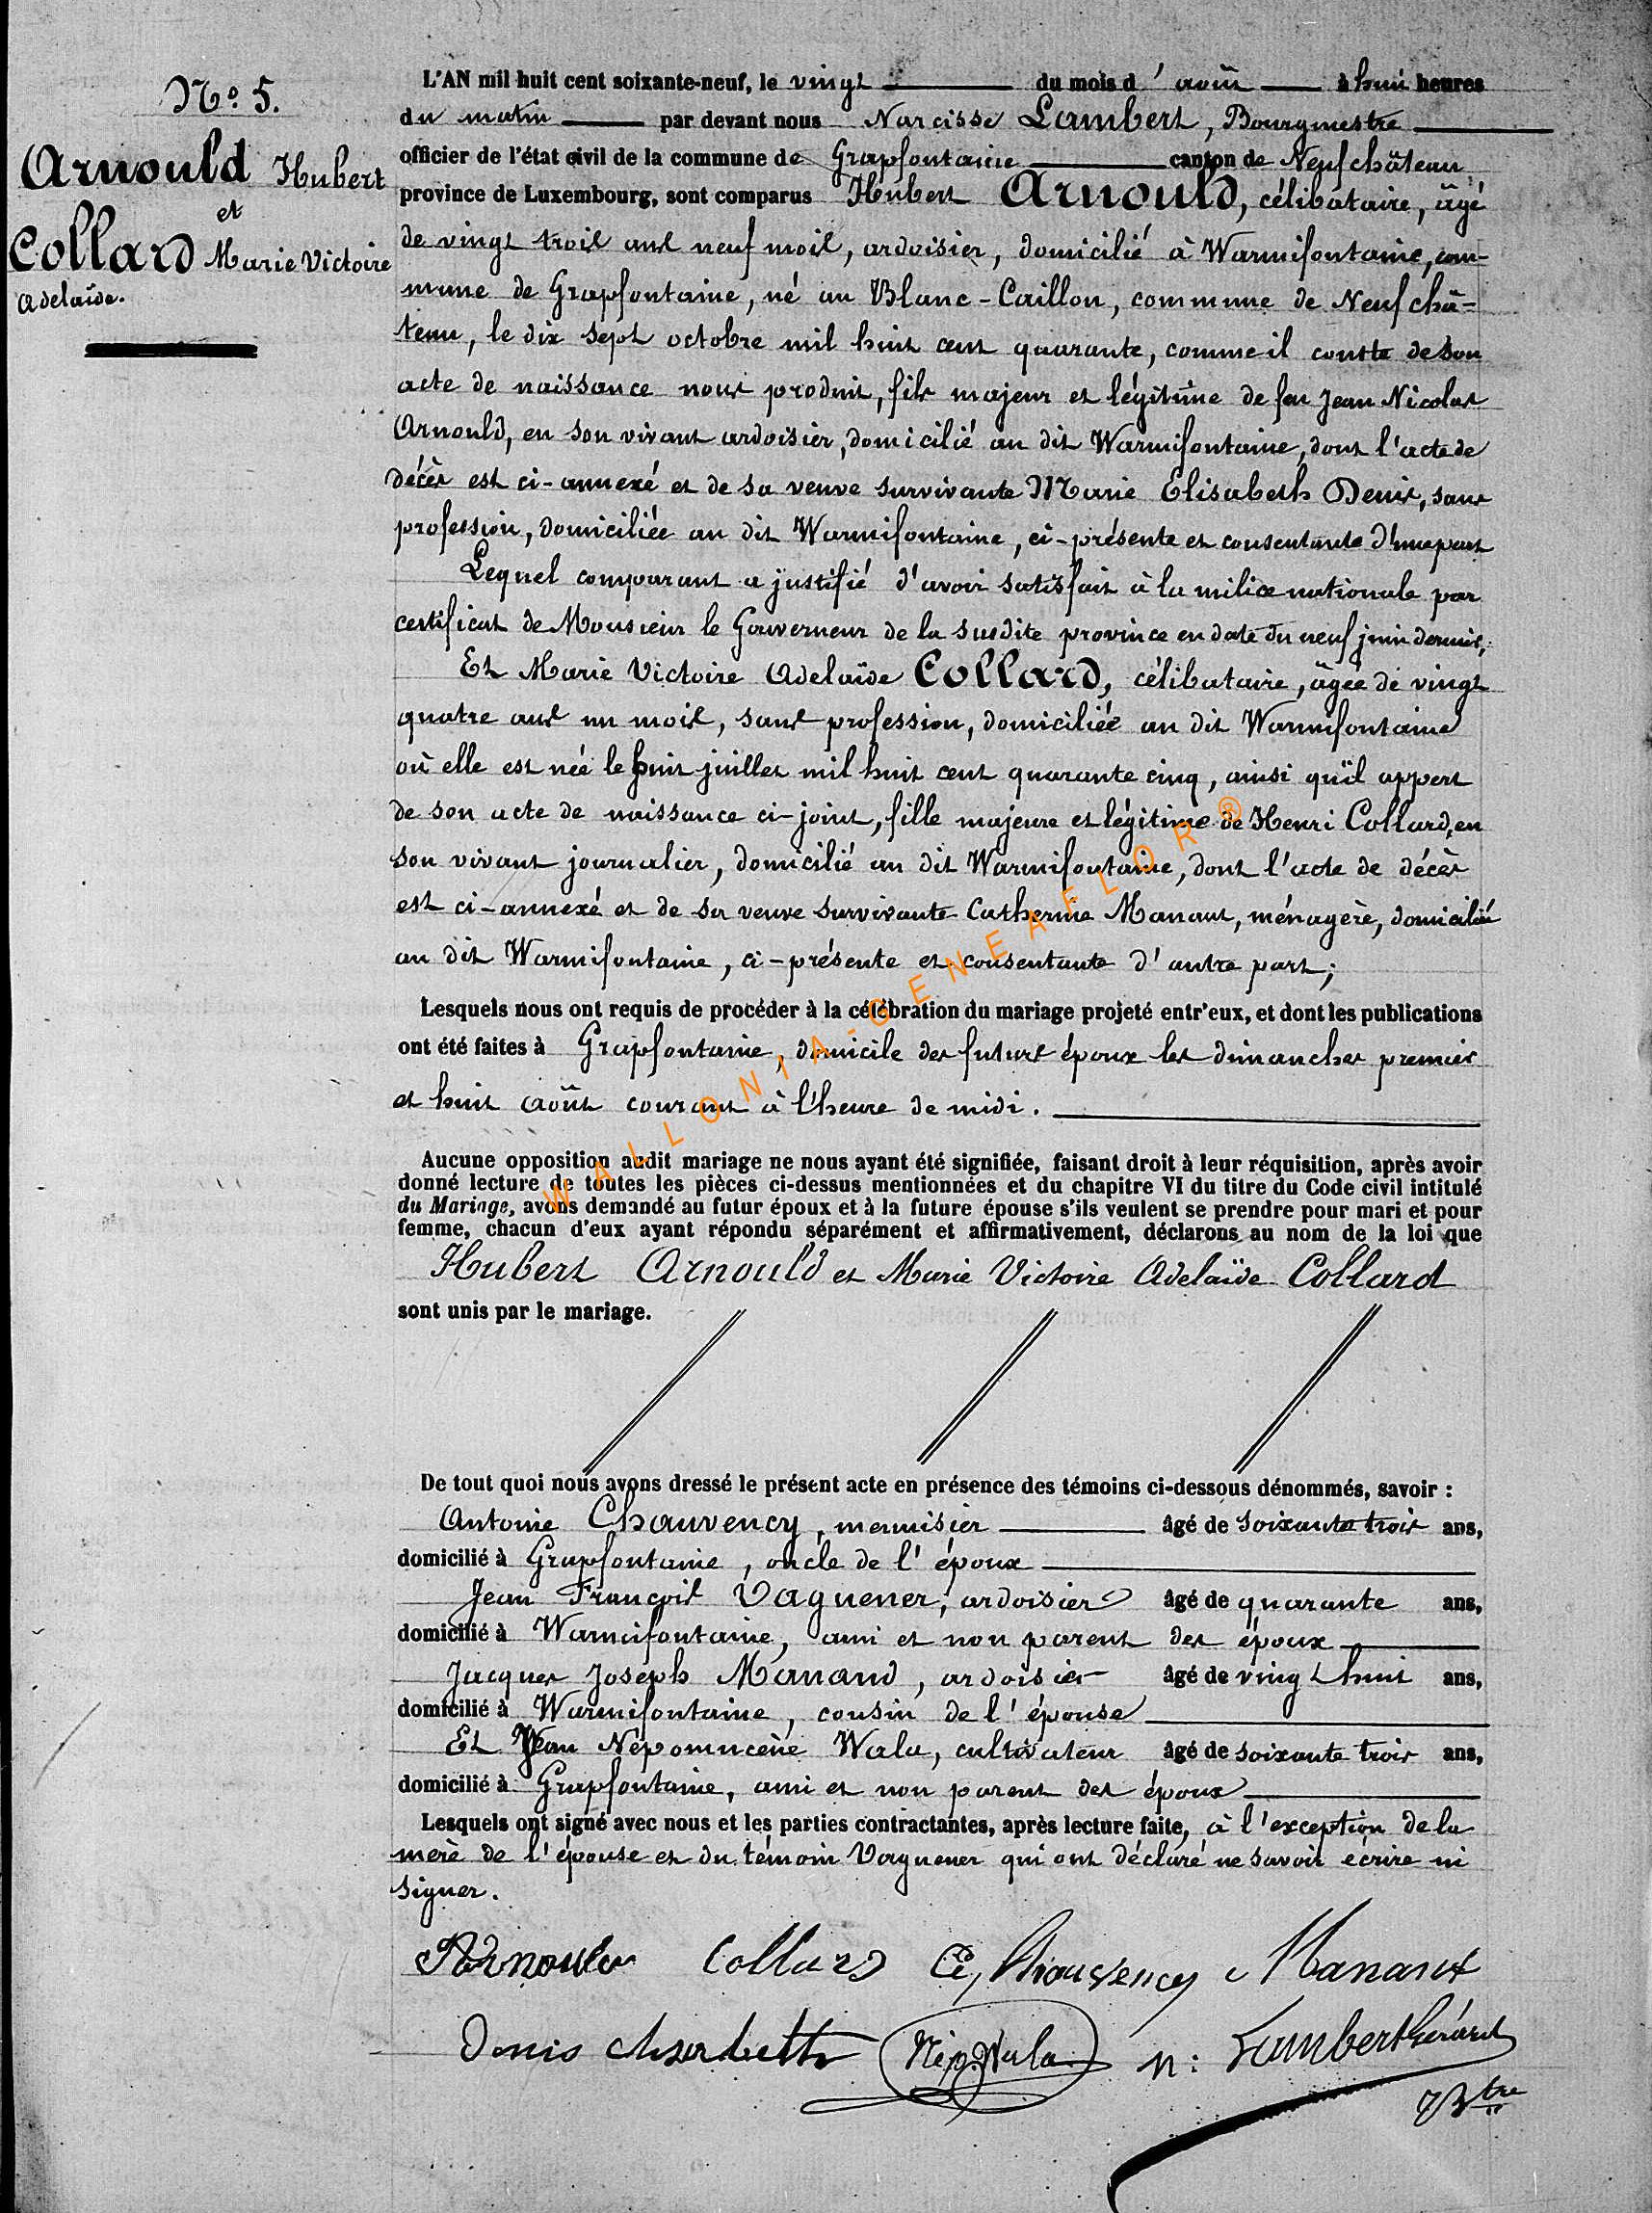 No 5.
Arnould Hubert
et
Collard Marie Victoire
Adelaïde.
L'AN mil huit cent soixante-neuf, le vingt du mois d'août à huit heures
du matin par devant nous Narcisse Lambert, Bourgmestre
officier de l'état civil de la commune de Grapfontaine canton de Neufchâteau
province de Luxembourg, sont comparus Hubert Arnould, célibataire, âgé
de vingt trois ans neuf mois, ardoisier, domicilié à Warmifontaine, com-
mune de Grapfontaine, né au Blanc-Caillou, commune de Neufchâ-
teau, le dix sept octobre mil huit cent quarante, comme il conste de son
acte de naissance nous produit, fils majeur et légitime de feu Jean Nicolas
Arnould, en son vivant ardoisier, domicilié au dit Warmifontaine, dont l'acte de
décès est ci-annexé et de sa veuve survivante Marie Elisabeth Denis, sans
profession, domiciliée au dit Warmifontaine, ci-présente et consentante d'une part
Lequel comparant a justifié d'avoir satisfait à la milice nationale par
certificat de Monsieur le Gouverneur de la susdite province en date du neuf juin dernier,
Et Marie Victoire Adelaïde Collard, célibataire, âgée de vingt
quatre ans un mois, sans profession, domiciliée au dit Warmifontaine
où elle est née le huit juillet mil huit cent quarante cinq, ainsi qu'il appert
de son acte de naissance ci-joint, fille majeure et légitime de Henri Collard, en
son vivant journalier, domicilié au dit Warmifontaine, dont l'acte de décès
est ci-annexé et de sa veuve survivante Catherine Manant, ménagère, domiciliée
au dit Warmifontaine, ci-présente et consentante d'autre part;
Lesquels nous ont requis de procéder à la célébration du mariage projeté entr'eux, et dont les publications
ont été faites à Grapfontaine, domicile des futurs époux les dimanches premier
et huit août courant à l'heure de midi.
WALLONIA-GENEAFLOR®
Aucune opposition audit mariage ne nous ayant été signifiée, faisant droit à leur réquisition, après avoir
donné lecture de toutes les pièces ci-dessus mentionnées et du chapitre VI du titre du Code civil intitulé
du Mariage, avons demandé au futur époux et à la future épouse s'ils veulent se prendre pour mari et pour
femme, chacun d'eux ayant répondu séparément et affirmativement, déclarons au nom de la loi que
Hubert Arnould et Marie Victoire Adelaïde Collard
sont unis par le mariage.
De tout quoi nous avons dressé le présent acte en présence des témoins ci-dessous dénommés, savoir :
Antoine Chauvency, menuisier âgé de soixante trois ans,
domicilié à Grapfontaine, oncle de l'époux
Jean François Vaguener, ardoisier âgé de quarante ans,
domicilié à Warmifontaine, ami et non parent des époux
Jacques Joseph Manand, ardoisier âgé de vingt huit ans,
domicilié à Warmifontaine, cousin de l'épouse
Et Jean Népomucène Wala, cultivateur âgé de soixante trois ans,
domicilié à Grapfontaine, ami et non parent des époux
Lesquels ont signé avec nous et les parties contractantes, après lecture faite, à l'exception de la
mère de l'épouse et du témoin Vaguener qui ont déclaré ne savoir écrire ni
signer.
Arnould Collard Chauvency Manant
Denis Nép Wala N: Lambert Gérard
Btre